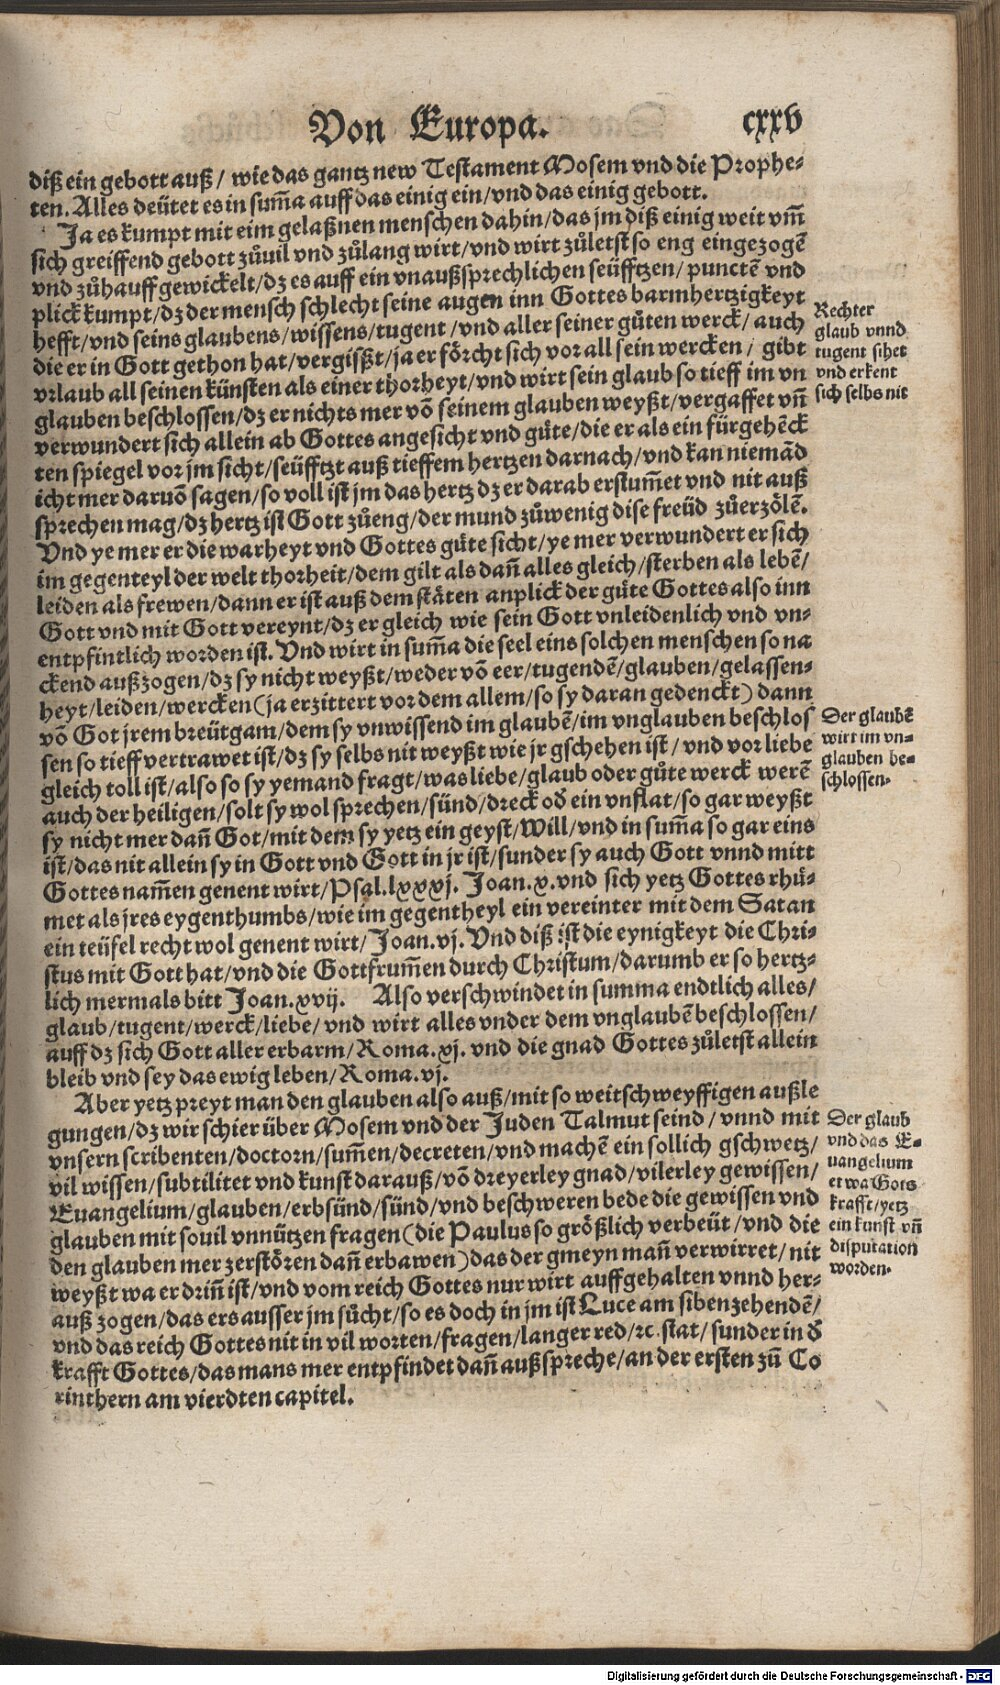 Von Europa. cxxv
diß ein gebott auß / wie das gantz new Testament Mosem vnd die Prophe-
ten. Alles deütet es in sum̃a auff das einig ein/vnd das einig gebott.
Ja es kumpt mit eim gelaßnen menschen dahin/das jm diß einig weit vm̃
sich greiffend gebott zůuil vnd zůlang wirt/vnd wirt zůletst so eng eingezogẽ
vnd zůhauff gewickelt/dz es auff ein vnaußsprechlichen seüfftzen/punctẽ vnd
plick kumpt/dz der mensch schlecht seine augen inn Gottes barmhertzigkeyt
hefft/vnd seins glaubens/wissens/tugent/vnd aller seiner gůten werck/auch
die er in Gott gethon hat/vergißt/ja er förcht sich vor all sein wercken/ gibt
vrlaub all seinen künsten als einer thorheyt/vnd wirt sein glaub so tieff im vn
glauben beschlossen/dz er nichts mer võ seinem glauben weyßt/vergaffet vñ
verwundert sich allein ab Gottes angesicht vnd güte/die er als ein fürgehẽck
ten spiegel vor jm sicht/seüfftzt auß tieffem hertzen darnach/vnd kan niemãd
icht mer daruõ sagen/so voll ist jm das hertz dz er darab erstum̃et vnd nit auß
sprechen mag/dz hertz ist Gott zůeng/der mund zůwenig dise freüd zůerzölẽ.
Vnd ye mer er die warheyt vnd Gottes güte sicht/ye mer verwundert er sich
im gegenteyl der welt thorheit/dem gilt als dañ alles gleich/sterben als lebẽ/
leiden als frewen/dann er ist auß dem stäten anplick der güte Gottes also inn
Gott vnd mit Gott vereynt/dz er gleich wie sein Gott vnleidenlich vnd vn-
entpfintlich worden ist. Vnd wirt in sum̃a die seel eins solchen menschen so na
ckend außzogen/dz sy nicht weyßt/weder võ eer/tugendẽ/glauben/gelassen-
heyt/leiden/wercken(ja erzittert vor dem allem/so sy daran gedenckt) dann
võ Got jrem breütgam/dem sy vnwissend im glaubẽ/im vnglauben beschlos
sen so tieff vertrawet ist/dz sy selbs nit weyßt wie jr gschehen ist/ vnd vor liebe
gleich toll ist/also so sy yemand fragt/was liebe/glaub oder gůte werck werẽ
auch der heiligen/solt sy wol sprechen/sünd/dreck oď ein vnflat/so gar weyßt
sy nicht mer dañ Got/mit dem sy yetz ein geyst/Will/vnd in sum̃a so gar eins
ist/das nit allein sy in Gott vnd Gott in jr ist/sunder sy auch Gott vnnd mitt
Gottes nam̃en genent wirt/Psal.lxxxj. Joan.x.vnd sich yetz Gottes rhů-
met als jres eygenthumbs/wie im gegentheyl ein vereinter mit dem Satan
ein teüfel recht wol genent wirt/Joan.vj. Vnd diß ist die eynigkeyt die Chri-
stus mit Gott hat/vnd die Gottfrum̃en durch Christum/darumb er so hertz-
lich mermals bitt Joan.xvij. Also verschwindet in summa endtlich alles/
glaub/tugent/werck/liebe/ vnd wirt alles vnder dem vnglaubẽ beschlossen/
auff dz sich Gott aller erbarm/Roma.xj. vnd die gnad Gottes zůletst allein
bleib vnd sey das ewig leben/Roma.vj.
Aber yetz preyt man den glauben also auß/mit so weitschweyffigen außle
gungen/dz wir schier über Mosem vnd der Juden Talmut seind/ vnnd mit
vnsern scribenten/doctorn/sum̃en/decreten/vnd machẽ ein sollich gschwetz/
vil wissen/subtilitet vnd kunst darauß/võ dreyerley gnad/vilerley gewissen/
Euangelium/glauben/erbsünd/sünd/vnd beschweren bede die gewissen vnd
glauben mit souil vnnützen fragen(die Paulus so größlich verbeüt/vnd die
den glauben mer zerstören dañ erbawen)das der gmeyn mañ verwirret/ nit
weyßt wa er driñ ist/vnd vom reich Gottes nur wirt auffgehalten vnnd her-
auß zogen/das ers ausser jm sůcht/so es doch in jm ist Luce am sibenzehendẽ/
vnd das reich Gottes nit in vil worten/fragen/langer red/ꝛc.stat/sunder in ď
krafft Gottes/das mans mer entpfindet dañ außspreche/an der ersten zů Co
rinthern am vierdten capitel.
Rechter
glaub vnnd
tugent sihet
vnd erkent
sich selbs nit
Der glaubẽ
wirt im vn-
glauben be-
schlossen.
Der glaub
vnd das E-
uangelium
etwa Gots
krafft/yetz
ein kunst vñ
disputation
worden.
Digitalisierung gefördert durch die Deutsche Forschungsgemeinschaft - DFG